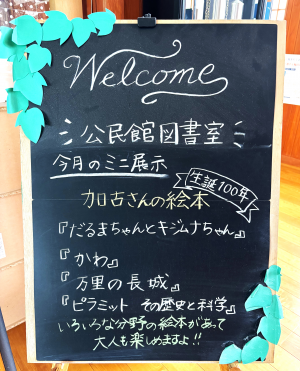 Welcome
公民館図書室
今月のミニ展示
生誕100年
加古さんの絵本
『だるまちゃんとキジムナちゃん』
『かわ』
『万里の長城』
『ピラミット その歴史と科学』
いろいろな分野の絵本があって
大人も楽しめますよ!!